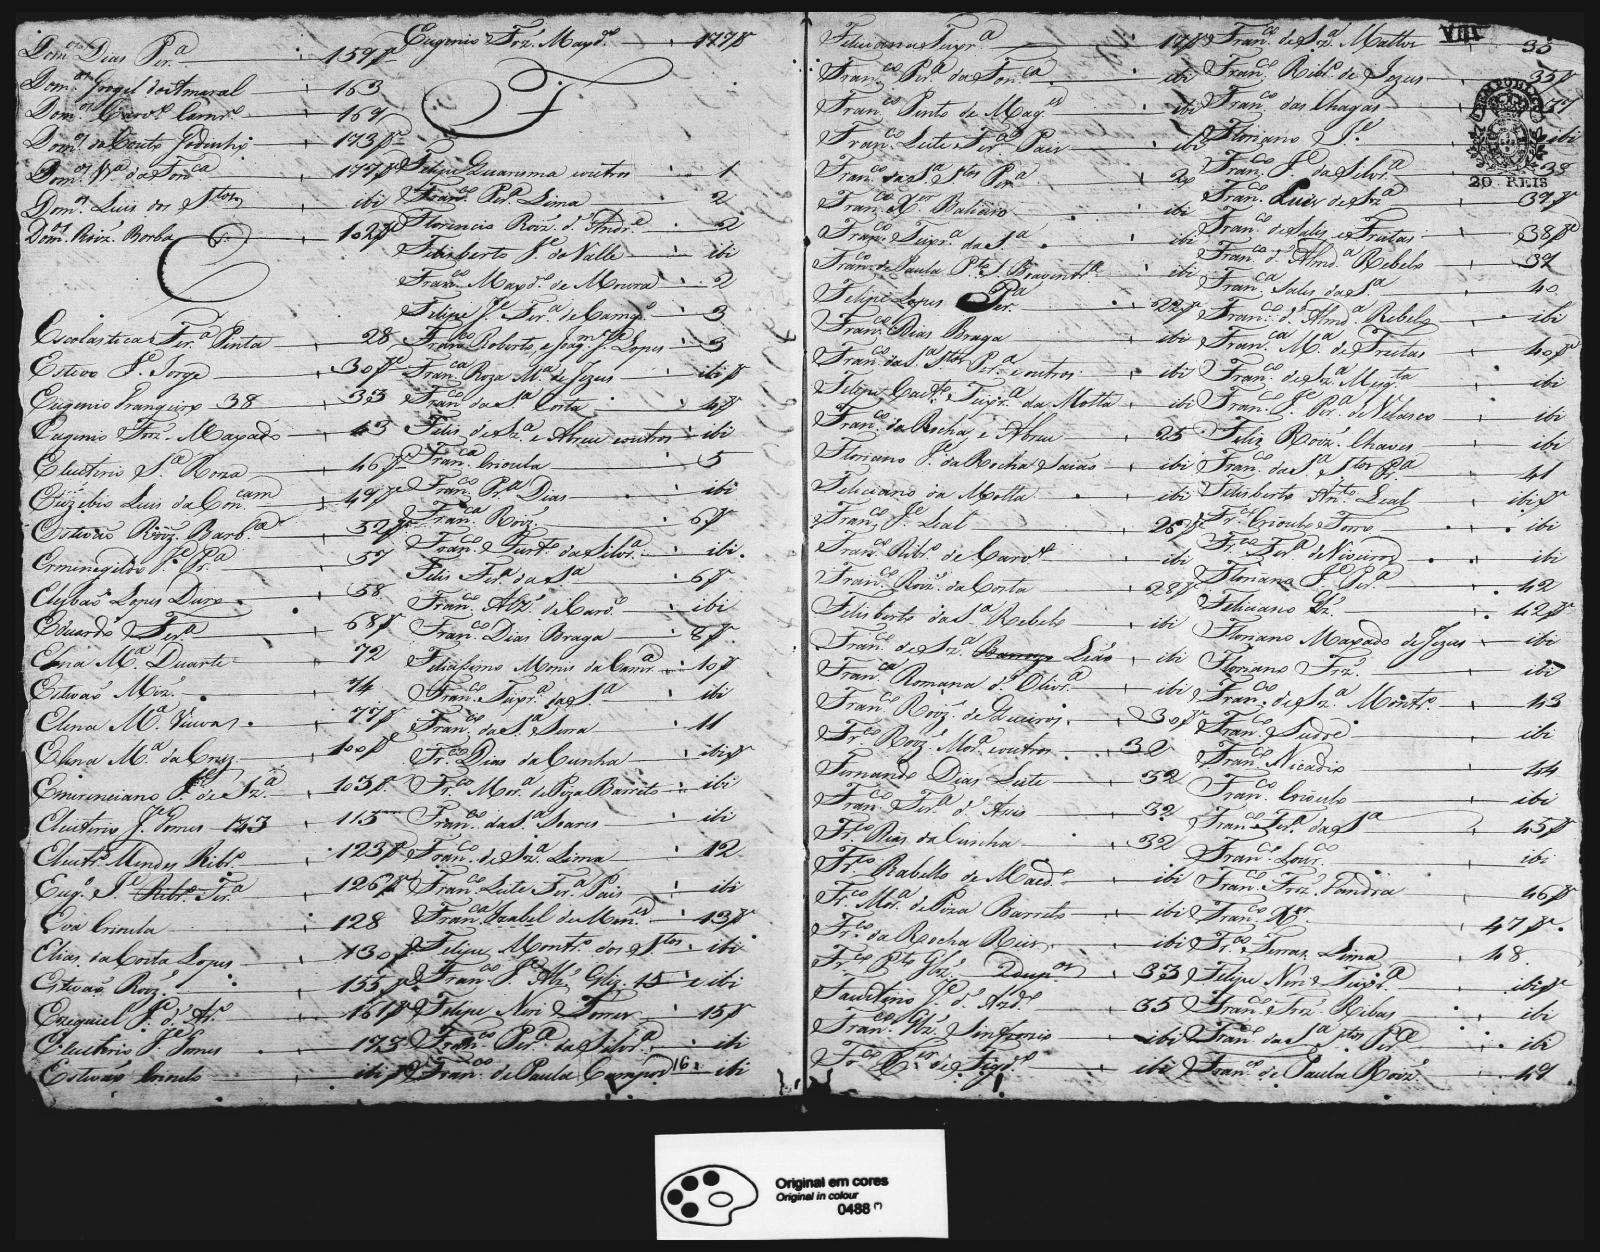 Dom.os Dias Per.a 159v
Dom.os Gorgel do Amaral 163
Dom.os Carv.o Camr.o 169
Dom.os do Couto Godinho 173v
Dom.os V.a da Fon.ca 177v
Dom.os Luis dos S.tos ibi
Dom.os Roiz' Borba 102v
E
Escolastica Fer.a Pinta 28
Estevo J.e Jorge 30v
Eugenio Franqueiro 38 33
Eugenio Frz' Maxado 43
Eleuterio S.a Roza 46v
Euzebio Luis da Con.cam 49v
Estevão Roiz' Barb.a 52v
Erminegildo J.e Pr.a 57
Lopes Duro 58
Eduardo Fer.a 68v
Elena M.a Duarte 72
Estevaõ Miz' 74
Elena M.a Viuva 77v
Elena M.a da Cruz 100v
Emerenciano J.e de Sz.a 103v
Eleuterio J.e Gomes 143 115
Eleutr.o Mendes Ribr.o 123v
Eug.o J.e Ribr.o Fer.a 126v
Eva Crioula 128
Elias da Costa Lopes 130v
Estevaõ Roiz' 155v
Ezequiel J.e d' Ar.o 161v
Eleuterio J.e Gomes 173
Estevaõ Crioulo ibi v
Eugenio Frz' Maxd.o 177v
F
Felipe Guarsma coutros 1
Fran.co Per.a Lima 2
Florencio Roiz' d' Andr.e 2
Felisberto J.e do Valle ibi
Fran.co Maxd.o de Moura 2
Felipe J.e Fer.a de Camg.o 3
Fran.co Roberto, e Joaq.m J.e Lopes 3
Fran.ca Roza M.a de Jezus ibi v
Fran.co da S.a Costa 4v
Felis de Sz.a e Abreu coutros ibi
Fran.ca Crioula 5
Fran.co Pr.a Dias ibi
Fran.ca Roiz' 6v
Fran.co Furt.o da Silv.a ibi
Felis Fer.a da S.a 6v
Fran.co Alz' de Carv.o ibi
Fran.co Dias Braga 8v
Feliasseno Moniz da Camr.a 10v
Fran.co Teixr.a da S.a ibi
Fran.co da S.a Sora 11
Fr.co Dias da Cunha ibi v
Fr.co Mor.a de Piza Barreto ibi
Fran.co da S.a Soares ibi
Fran.co de Sz.a Lima 12
Fran.co Leite Fer.a Pais ibi
Fran.ca Izabel de Men.es 13v
Felipe Montr.o dos S.tos ibi
Fran.co J.e Alz' Glz. 15 e ibi
Felipe Neri Torres 15v
Fran.co Per.a da Silv.a ibi
Fran.co de Paula Campos 16 ibi
Feliciana Teixr.a 17v
Fran.co Per.a da Fon.ca ibi
Fran.co Pinto de Mag.es ibi
Fran.co Leite Fer.a Pais ibi
Fran.co da S.a S.tos Per.a 20
Fran.co X.er Balieiro ibi
Fran.co Teixr.a da S.a ibi
Fran.co de Paula P.to S. Boavent.a ibi
Felipe Lopes Per.a 22v
Fran.co Dias Braga ibi
Fran.co da S.a S.tos Per.a coutros ibi
Felipe Caet.o Teixr.a da Motta ibi
Fran.co da Rocha e Abreu 25
Floriano J.e da Rocha Saiaõ ibi
Feliciano da Motta ibi
Fran.co J.e Leal 26v
Fran.co Ribr.o de Carv.o ibi
Fran.co Roiz' da Costa 28v
Felisberto da S.a Rebelo ibi
Fran.co de Sz.a Barroso Leão ibi
Fran.ca Romana d' Olivr.a ibi
Fran.co Roiz' de Queiros 30v
Fr.co Roiz' Mor.a coutros 32
Fernando Dias Leite 32
Fran.co Fer.a d' Assis 32
Fr.co Dias da Cunha 32
Fr.co Rabello de Maced.o ibi
Fr.co Mor.a de Piza Barreto ibi
Fr.co da Rocha Reis ibi
Fr.co P.to Glz' 33
Faustino J.e d' Azd.o 35
Fran.co Sinfronio ibi
Fr.co X.er de Figd.o ibi
VIII
20 REIS
Fran.co de Sz.a Mattos 35
Fran.co Ribr.o de Jezus 35v
Fran.co das Chagas 37
Floriano J.e ibi
Fran.co J.e da Silv.a 38
Fran.co Luis de Sz.a 37v
Fran.co de Sales e Freitas 38v
Fran.co d' Almd.a Rebelo 39
Fran.ca Sales da S.a 40
Fran.co d' Almd.a Rebelo ibi
Fran.ca M.a de Freitas 40v
Fran.co de Sz.a Mesq.ta ibi
Fran.co J.e Per.a de Velasco ibi
Felix Roiz' Chaves ibi
Fran.co da S.a S.tos Pr.a 41
Felisberto An.to Leal ibi v
Fr.co Crioulo Forro ibi
Fr.co Fer.a de Niveiros ibi
Floriana J.e Per.a 42
Feliciano 42v
Floriano Maxado de Jezus ibi
Floriano Frz' ibi
Fran.co de Sz.a Montr.o 43
Fran.co Sudré ibi
Fran.co Nicacio 44
Fran.co Crioulo ibi
Fran.co Fer.a da S.a 45v
Fran.co Lour.co ibi
Fran.co Frz' Fandra 46v
Fran.co X.er 47v
Fr.co Ferraz Lima 48
Felipe Neri Teixr.a ibi v
Fran.co Frz' Ribas ibi
Fran.co da S.a S.tos ibi
Fran.co de Paula Roiz' 49
Original em cores
Original in colour
0488 (*)